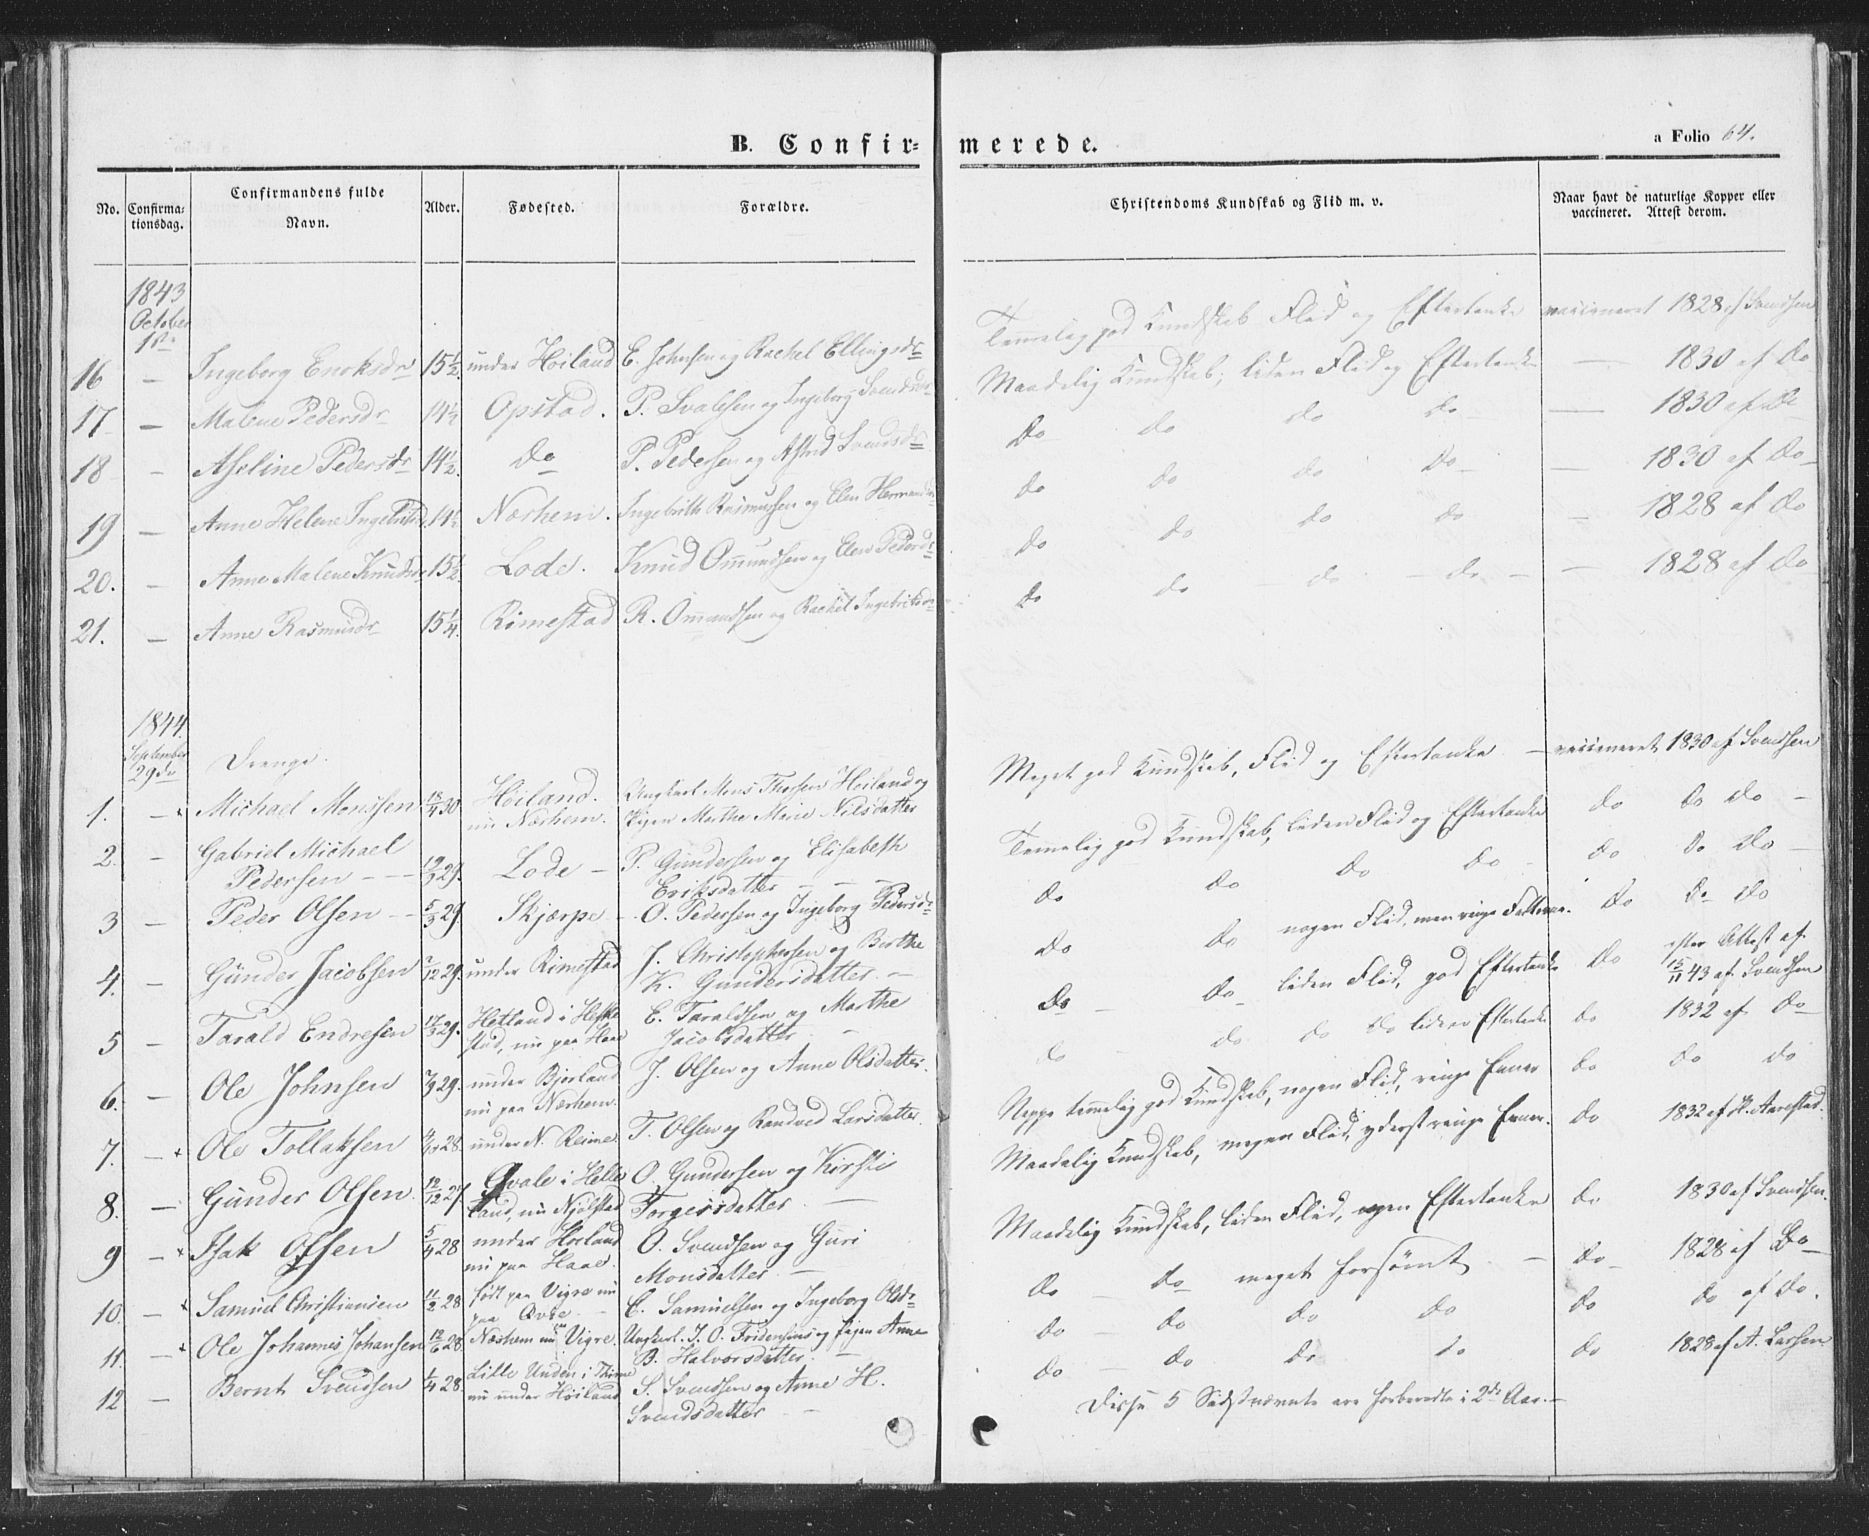 B. Confir= merede.
a Folio 64.
No. Confirma= tionsdag. Confirmandens fulde Navn. Alder. Fødested. Forældre. Christendoms Kundskab og Flid m. v. Naar havt de naturlige Kopper eller vaccineret. Attest derom.
1843
October
1ste
16 — Ingeborg Enoksdr 15½ under Høiland E. Johnsen og Rachel Ellingsdr Temmelig god Kundskab Flid og Eftertanke vaccineret 1828 af Svendsen
17 — Malene Pedersdr 14½ Opstad. P. Svalesen og Ingeborg Svendsdr Maadelig Kundskab, liden Flid og Eftertanke — 1830 af do
18 — Aseline Pedersdr 14½ do P. Pedersen og Astrid Svendsdr do do do do — 1830 af do
19 — Anne Helene Ingebritsdr 14½ Nærhem. Ingebrith Rasmussen og Elen Hermansdr do do do do — 1830 af do
20. — Anne Malene Knudsdr 15½ Lode. Knud Omundsen og Elen Pedersdr do do do do — 1828 af do
21. — Anne Rasmusdr 15¼ Rimestad R. Omundsen og Rachel Ingebritsdr do do — do — do — — 1828 af do
1844
September
29de Drenge.
1. — Michael Monssen 18/4 30 Høiland. Ungkarl Mons Thorsen Høiland og Meget god Kundskab, Flid og Eftertanke — vaccineret 1830 af Svendsen
nu Nærhem. Pigen Marthe Marie Nilsdatter
2. — Gabriel Michael Temmelig god Kundskab, liden Flid og Eftertanke do do do —
Pedersen — — 29. Lode — P. Gundersen og Elisabeth
Eriksdatter — — —
3 — Peder Olsen — 5/3 29 Skjærpe — O. Pedersen og Ingeborg Pedersdr do do do do — do do do —
4. — Gunder Jacobsen /12 29. under Rimestad J. Christophersen og Berthe do do nogen Flid, men ringe do do do
K. Gundersdatter. —
5 — Tarald Endresen 17/3 29. Hetland i Heske E. Taraldsen og Marthe do — do liden Flid, god Eftertanke do efter Attest af
stad, nu paa Haae Jacobsdatter — 15/11 43 af Svendsen
6. — Ole Johnsen /9 29. under Bjorland J. Olsen og Anne Olsdatter. do — do do do liden Eftertanke do 1832 af do
nu paa Nærhem.
7. — Ole Tollaksen 28 under N. Reime T. Olsen og Randved Larsdatter Neppe temmelig god Kundskab, nogen Flid, ringe Evner do do do
8. — Gunder Olsen. 12/12 27 Qvale i Helle O. Gundersen og Kirsti Maadelig Kundskab, megen Flid, yderst ringe Evner. do 1832 af Aarestad.
land, nu Njølstad Torgersdatter —
9 — Isak Olsen 5/4 28 under Høiland O. Svendsen og Guri Maadelig Kundskab, liden Flid, ingen Eftertanke do 1830 af Svendsen.
nu paa Haae. Monsdatter —
10 — Samuel Christiansen 11/2 28 født paa Vigre nu C. Samuelsen og Ingeborg Olsdr do — do meget forsømt — do — 1828 af do —
paa —
11. — Ole Johannes Johansen 12/6 28 Nærhem nu Vigre. Ungkarl. J. O. og Pigen Anne do — do do do do do af do.
B. Halvorsdatter. —
12 — Bernt Svendsen /4 28. Lille i Thime S. Svendsen og Anne H. do — do do do do 1828 af A. Larsen
nu under Høiland Svendsdatter —
Disse 5 Sidstnævnte ere forberedte i 2de Aar. —